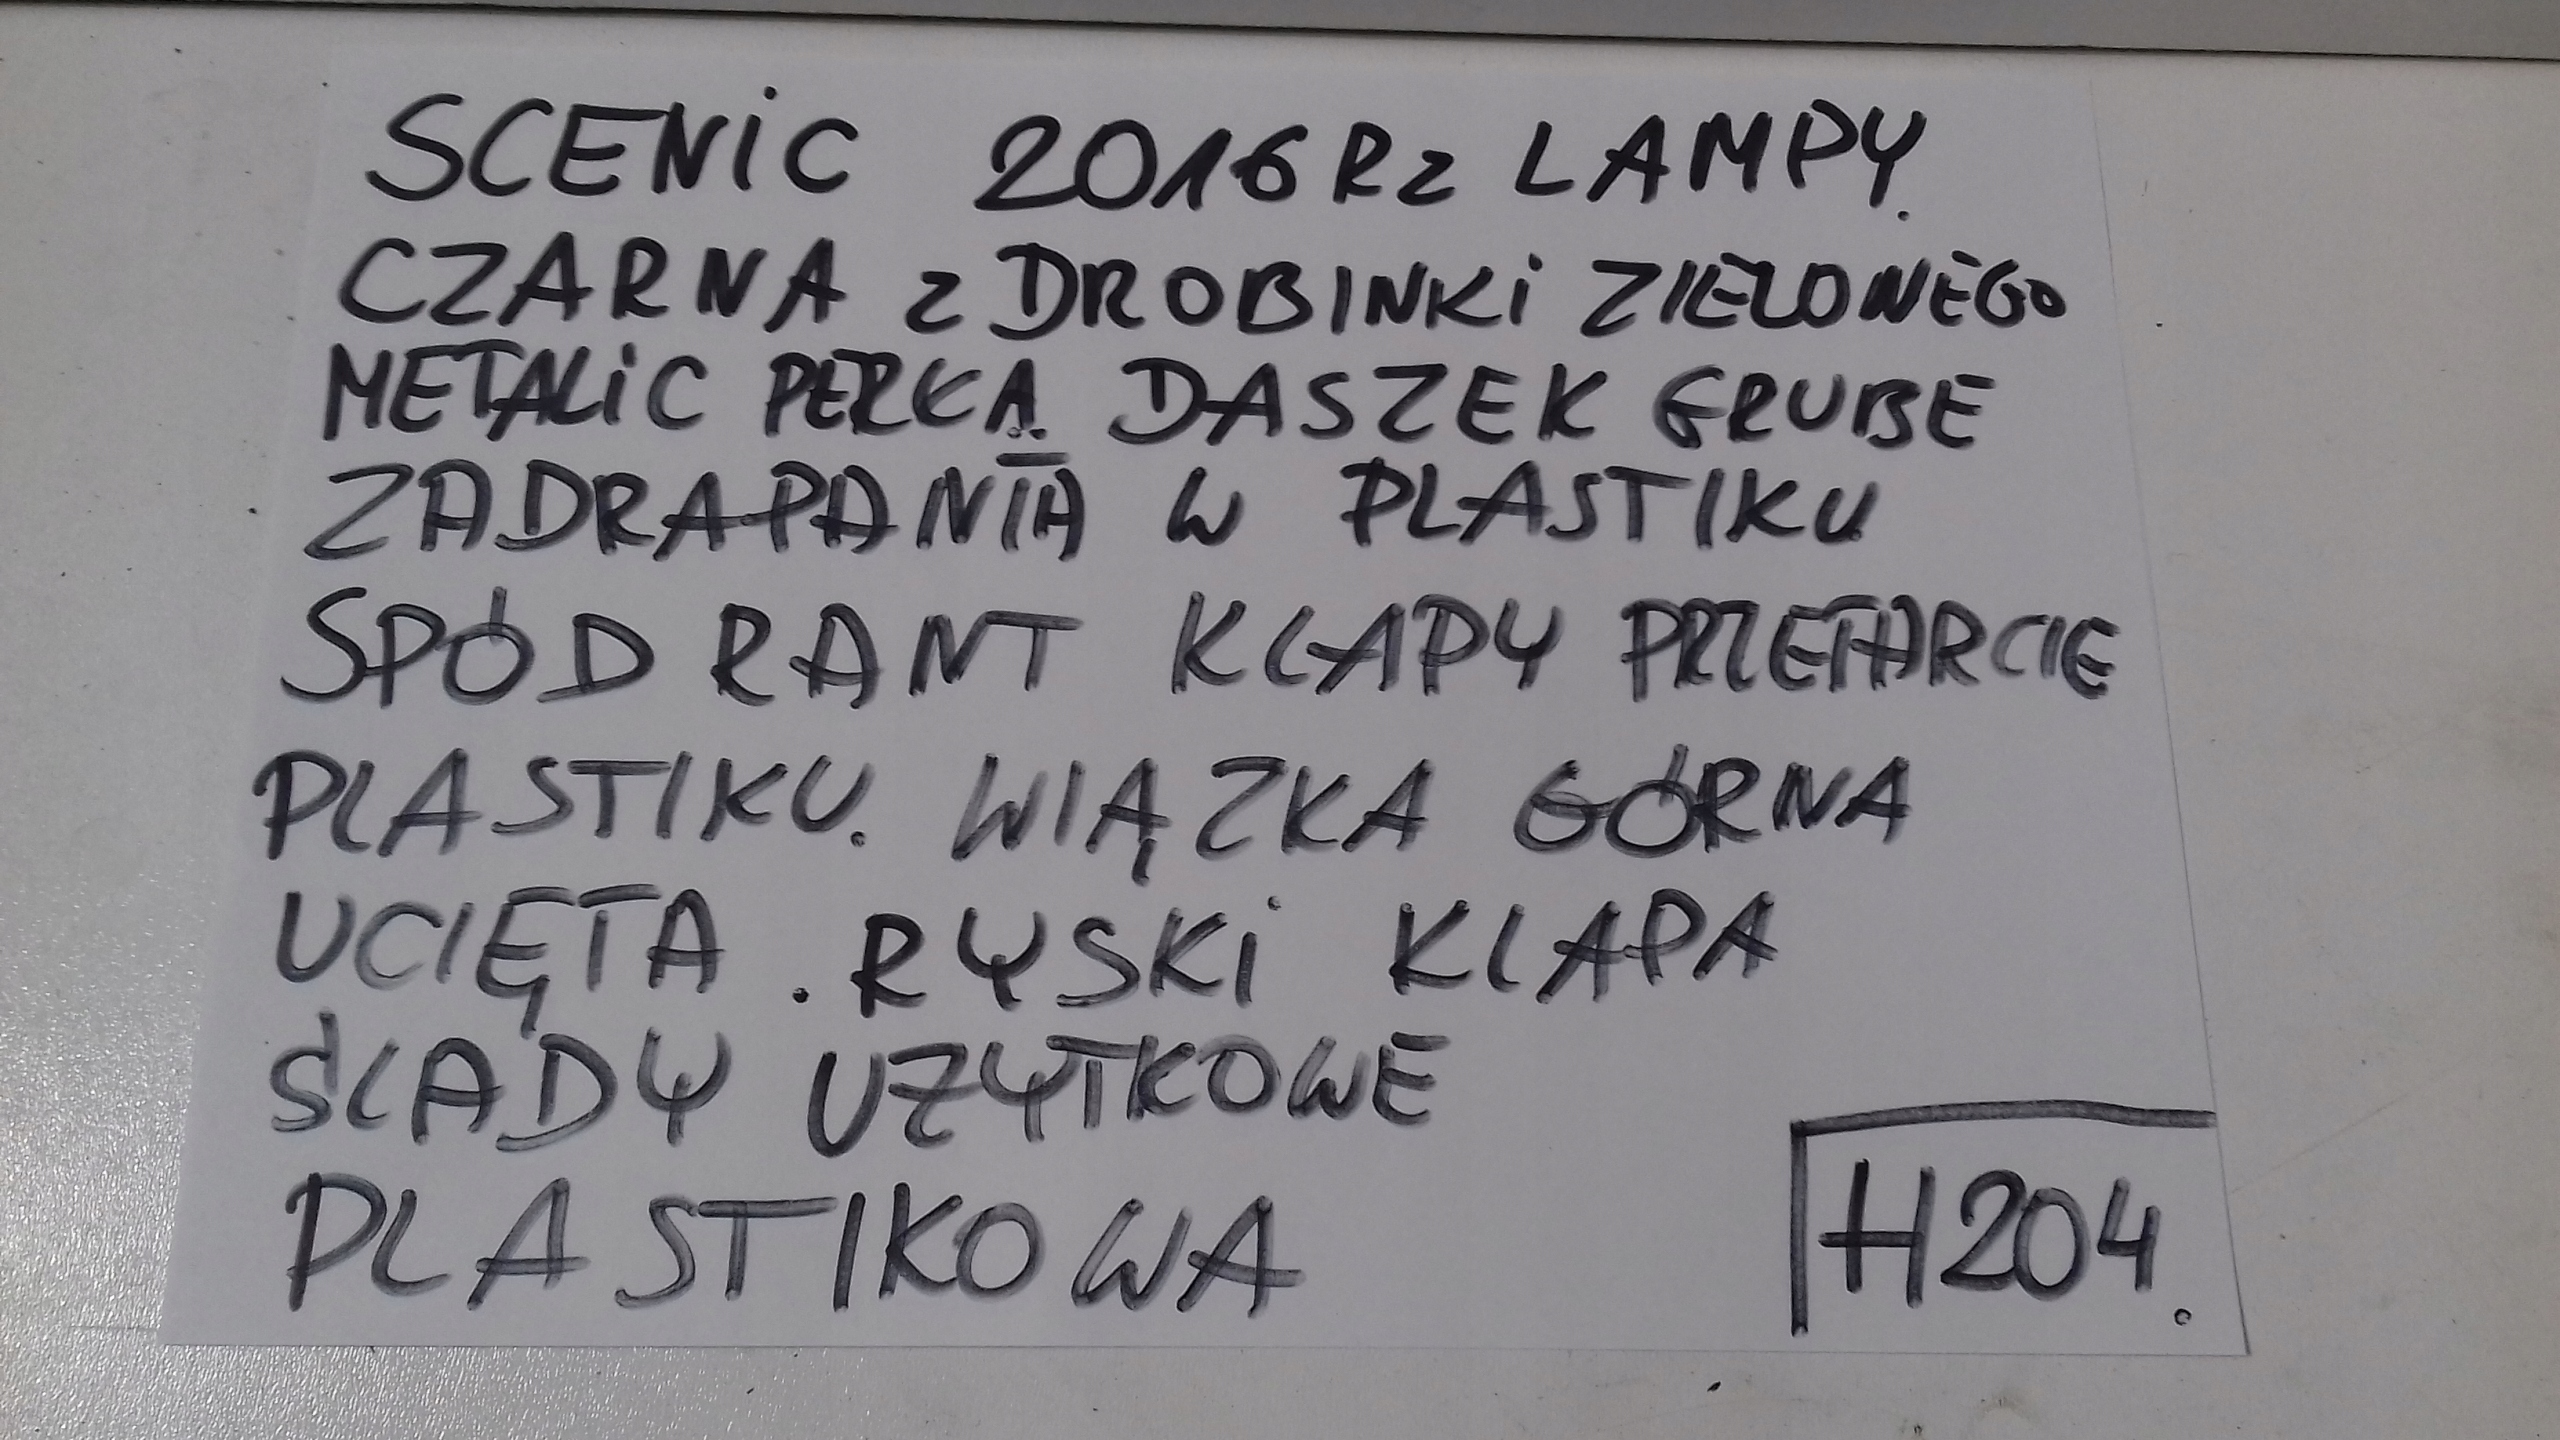 SCENiC 2016 Rz LAMPY.
CZARNA z DROBINKi ZIELONEGO
METALiC PERKA. DASZEK GRUBE
ZADRAPANIA W PLASTIKU
SPÓD RANT KLAPY PRZETARCIE
PLASTIKU. WIĄZKA GÓRNA
UCIĘTA. RYSKi KLAPA
ŚLADY UZYTKOWE
PLASTIKOWA
H204.